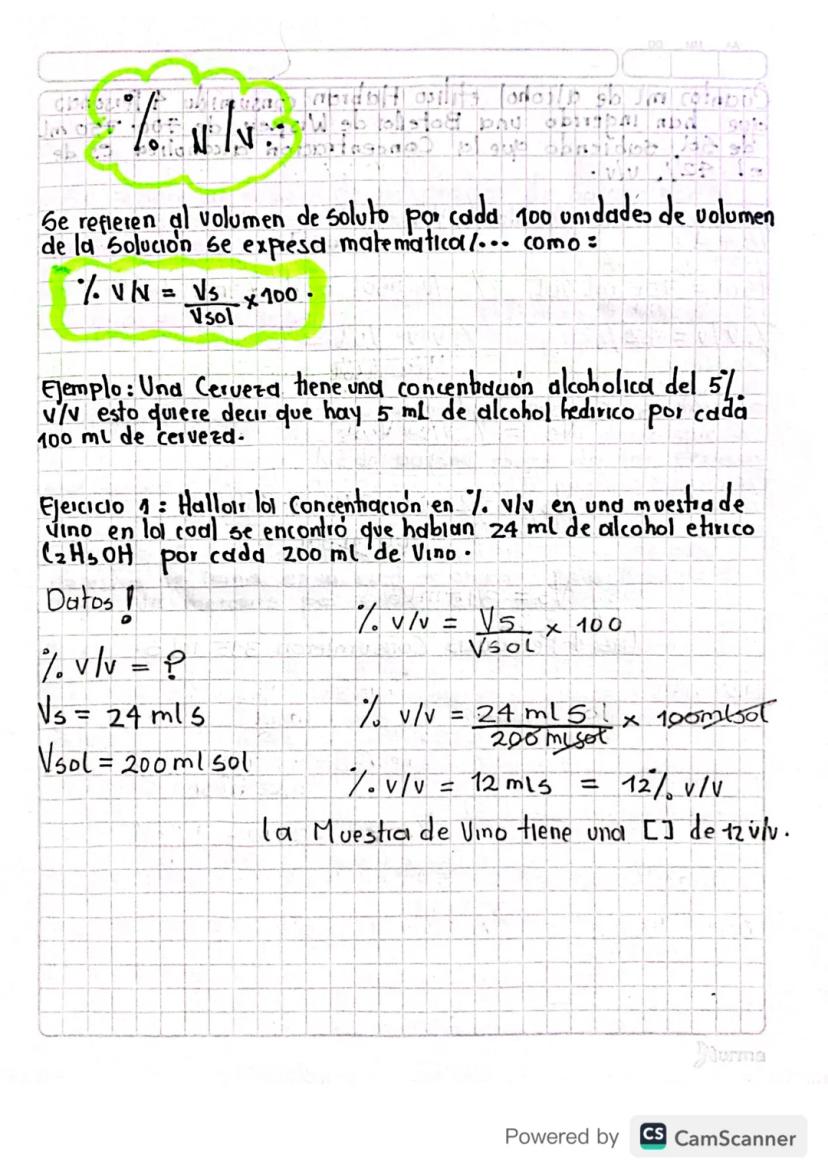 % v/v.
Se refieren al volumen de soluto por cada 100 unidades de volumen
de la solución se expresa matematica/... como:
% V/V = Vs/Vsol x 100.
Ejemplo: Una Cerveza tiene una concentración alcoholica del 5%
v/v esto quiere decir que hay 5 mL de alcohol por cada
100 ml de cerveza.
Ejercicio 1: Hallar la Concentración en % v/v en una muestra de
vino en la cual se encontró que habian 24 ml de alcohol etirico
C2H5OH por cada 200 ml de Vino.
Datos!
% v/v = Vs/Vsol x 100
% v/v = ?
Vs = 24 ml s
% v/v = 24 ml s/200 ml sol x 100ml sol
Vsol = 200 ml sol
% v/v = 12 mls = 12% v/v
la Muestra de Vino tiene una [] de 12 v/v.
Norma
Powered by CS CamScanner